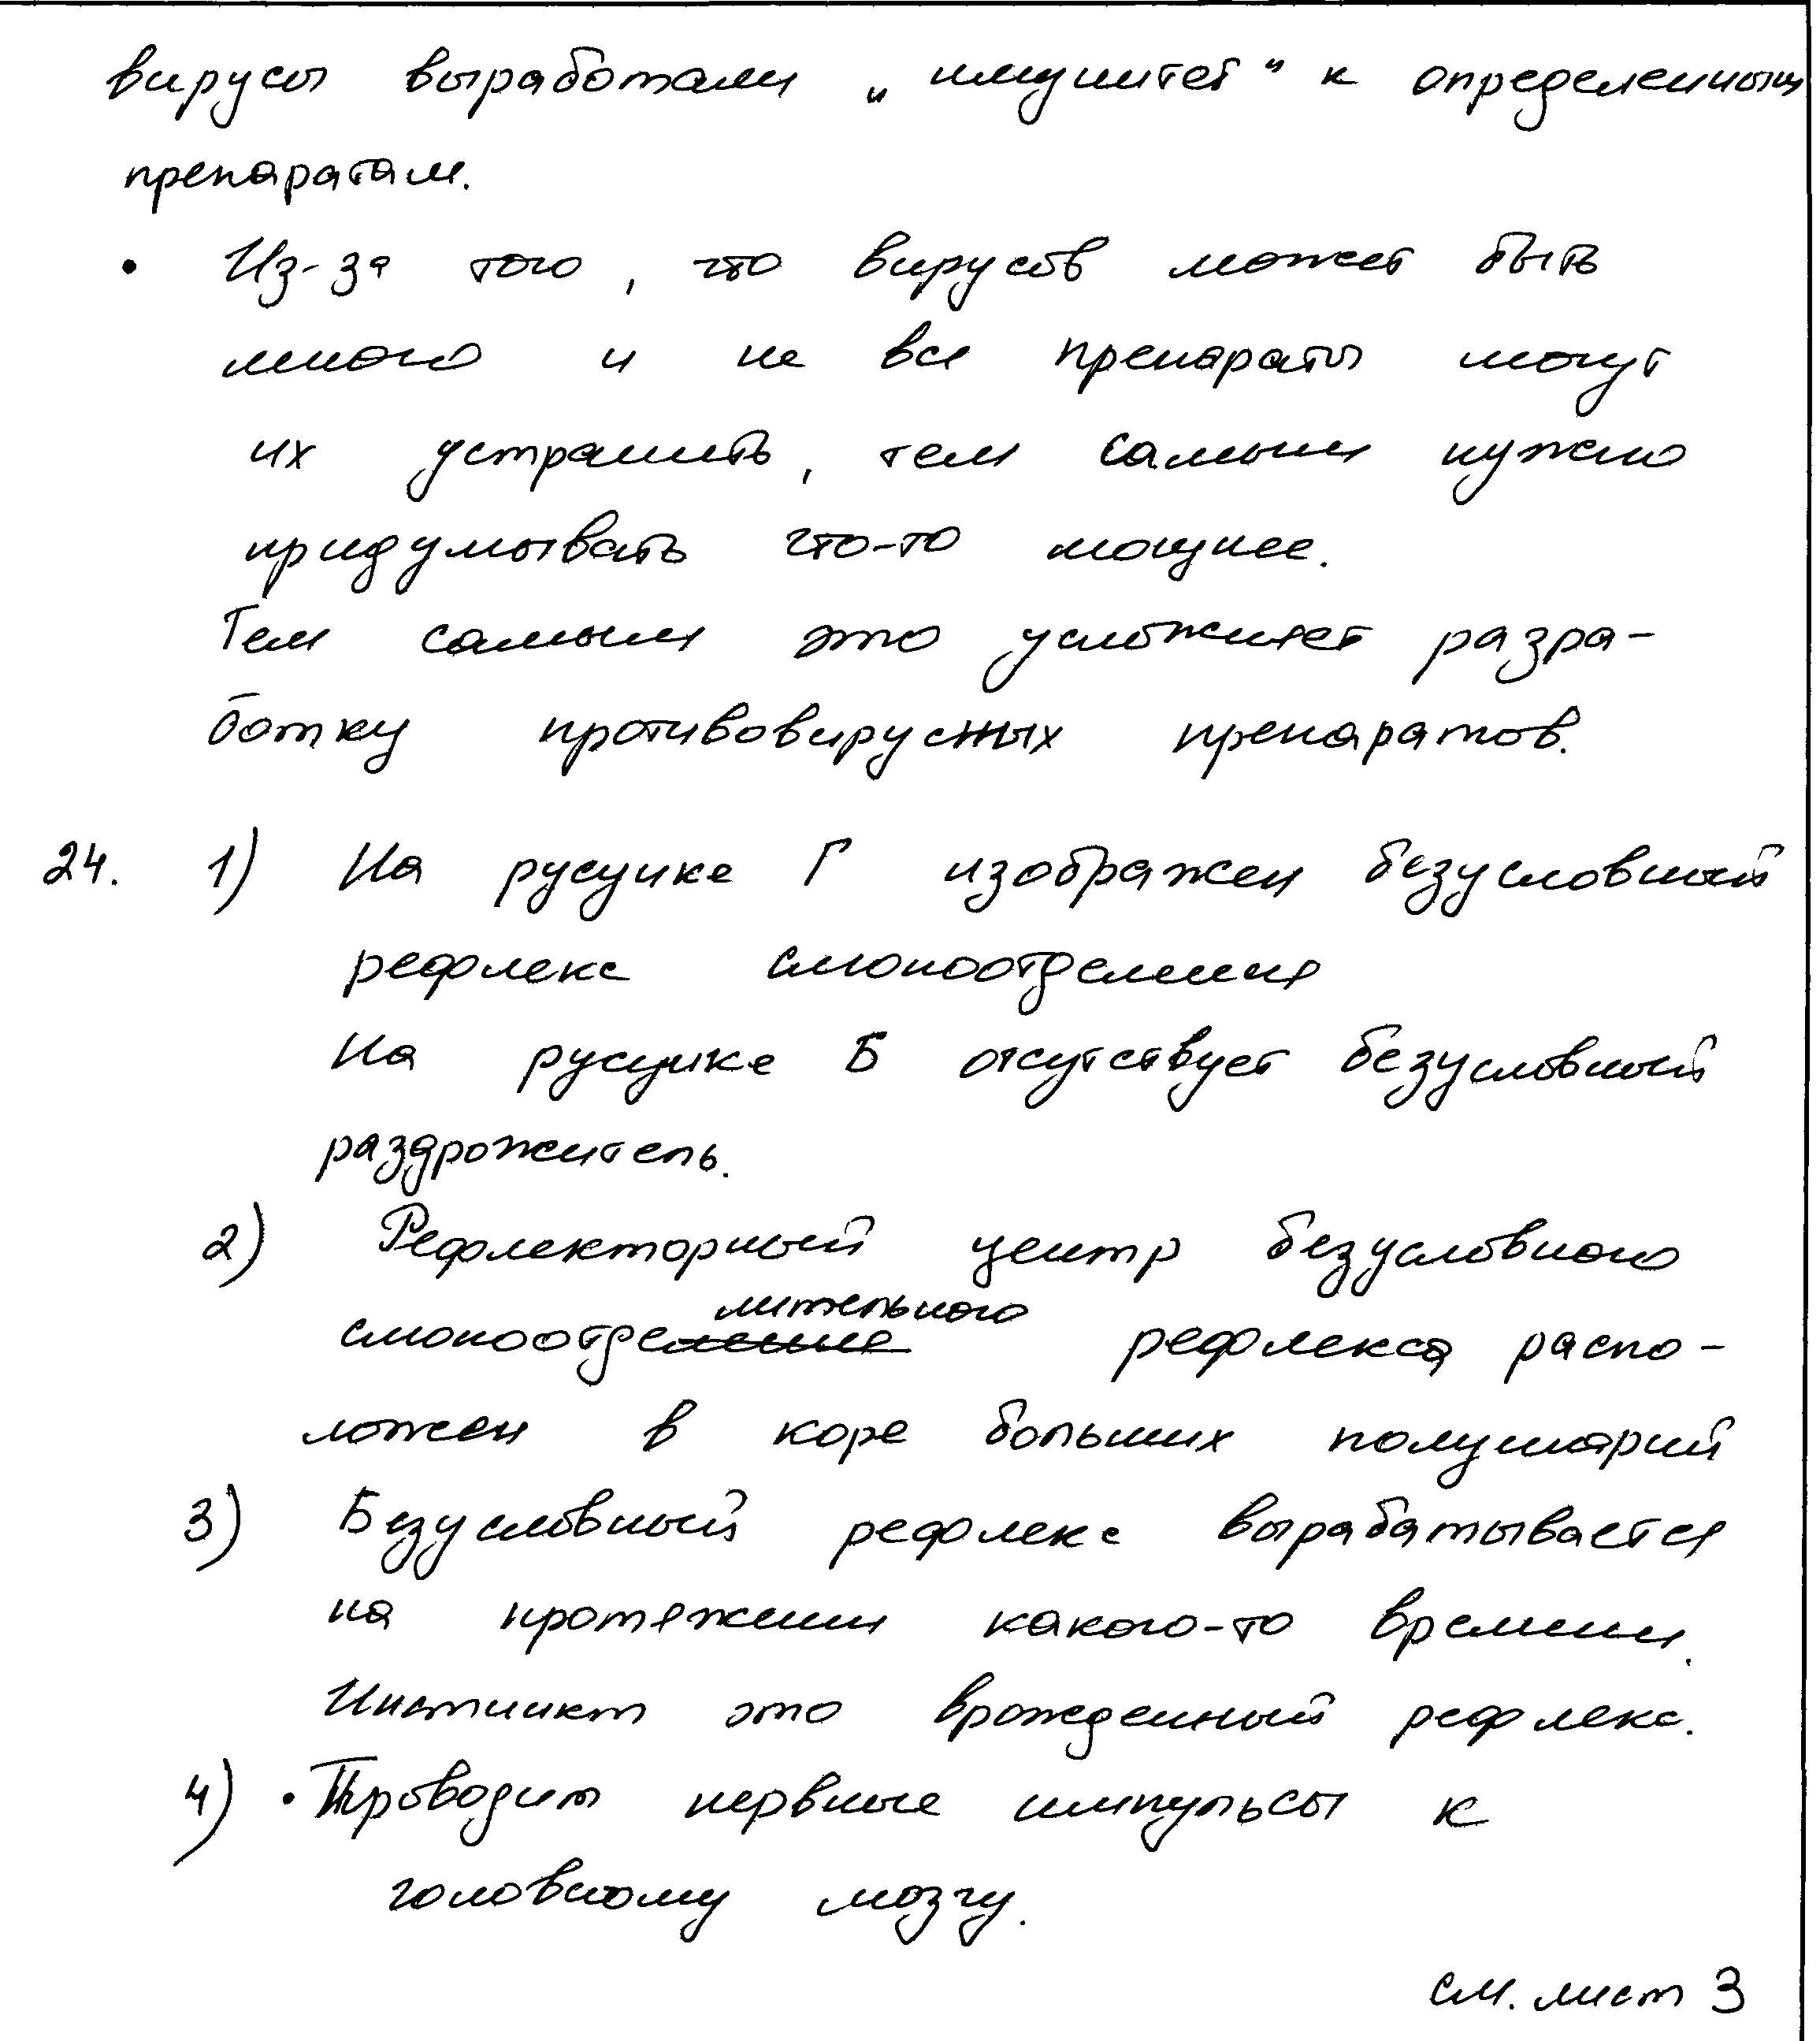 вирусы выработали „имунитет" к определенным
препаратам.
• Из-за того, что вирусов может быть
много и не все препараты могут
их устранить, тем самым нужно
придумывать что-то мощнее.
Тем самым это усложняет разра-
ботку противовирусных препаратов.
24. 1) На русунке Г изображен безусловный
рефлекс слюноотделения
На русунке Б отсутствует безусловный
раздрожитель.
2) Рефлекторный центр безусловного
слюноотделительного рефлекса распо-
ложен в коре больших полушарий
3) Безусловный рефлекс вырабатывается
на протяжении какого-то времени.
Инстинкт это врожденный рефлекс.
4) • Проводит нервные импульсы к
головному мозгу.
см. лист 3